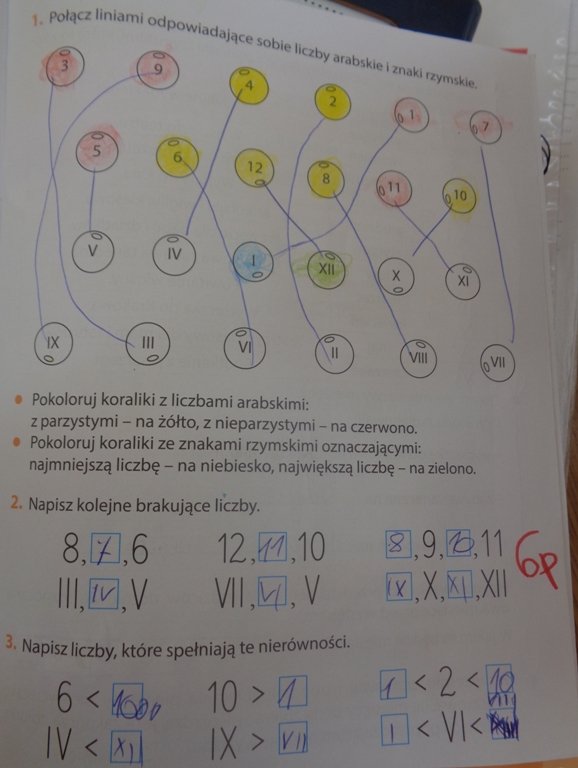 1. Połącz liniami odpowiadające sobie liczby arabskie i znaki rzymskie.
3 9 4 2 1 7
5 6 12 8 11 10
V IV I XII X XI
IX III VI II VIII VII
• Pokoloruj koraliki z liczbami arabskimi:
z parzystymi – na żółto, z nieparzystymi – na czerwono.
• Pokoloruj koraliki ze znakami rzymskimi oznaczającymi:
najmniejszą liczbę – na niebiesko, największą liczbę – na zielono.
2. Napisz kolejne brakujące liczby.
8, 7, 6 12, 11, 10 8, 9, 10, 11
III, IV, V VII, VI, V IX, X, XI, XII
6p
3. Napisz liczby, które spełniają te nierówności.
6 < 1000 10 > 1 1 < 2 < 10
IV < XII IX > VII I < VI < VIII